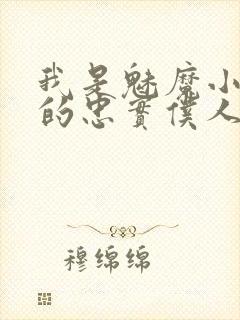 我是魅魔小
的忠實僕人
穆绵绵